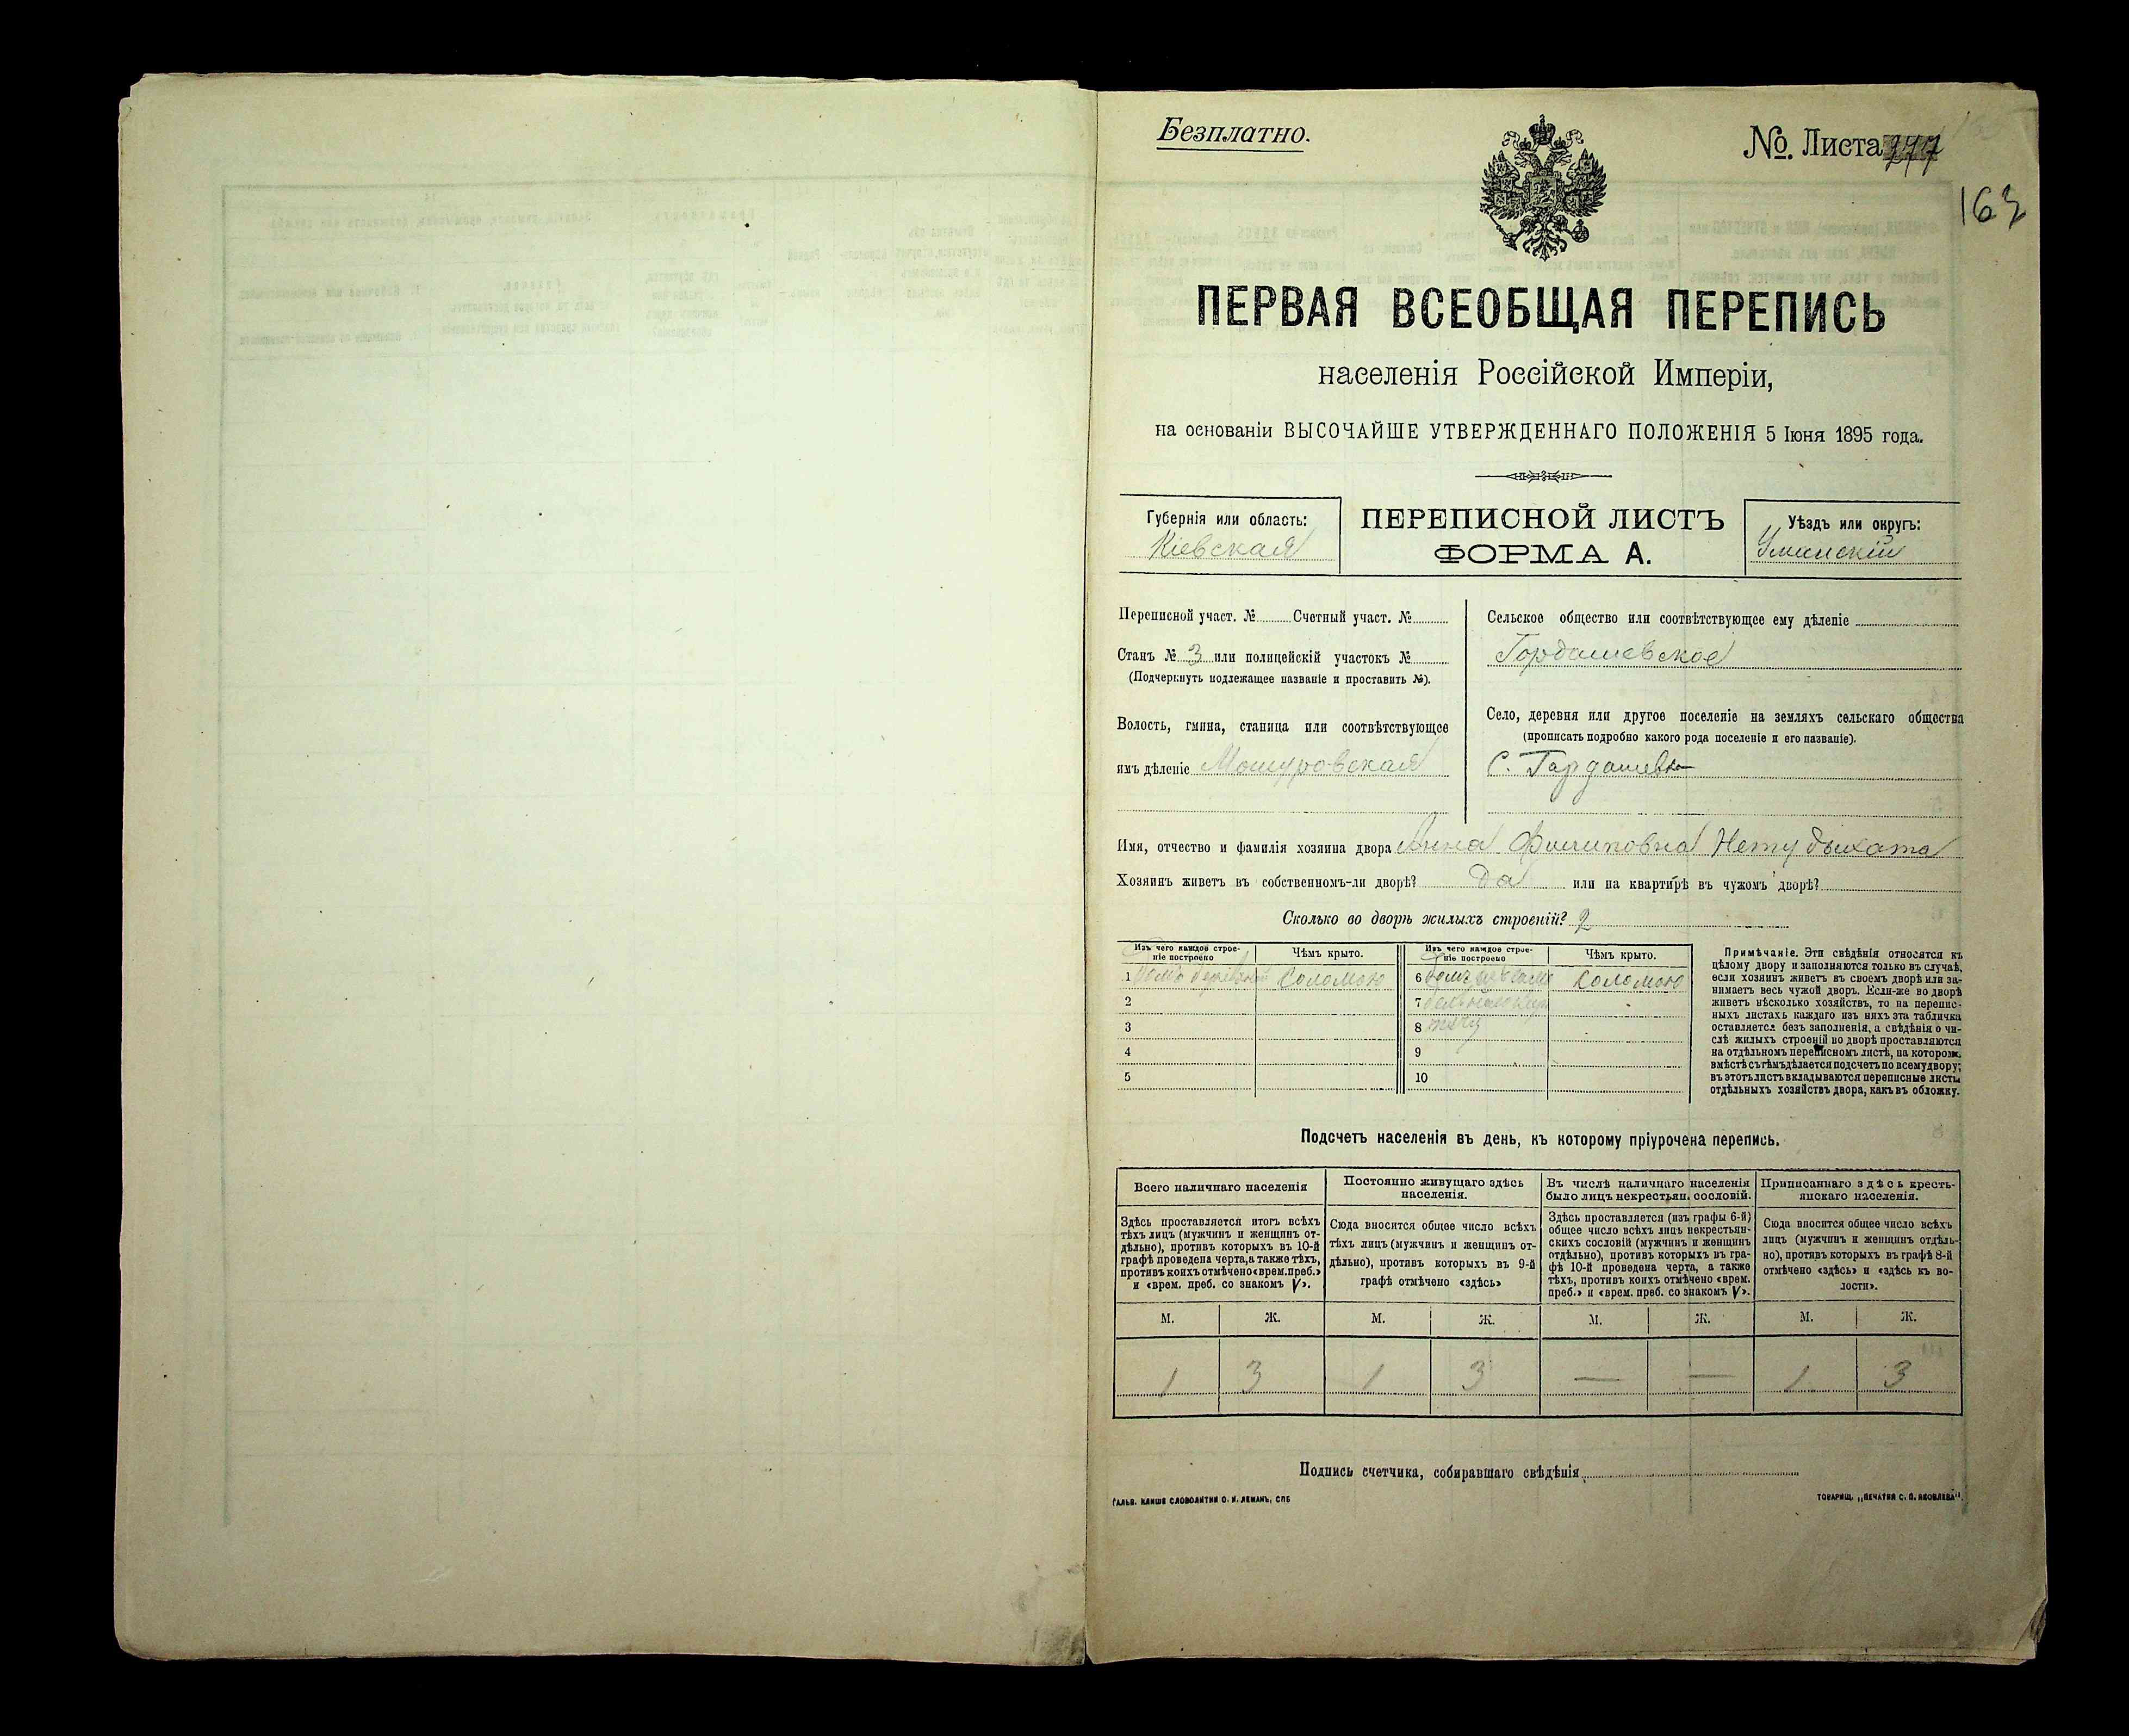 Безплатно.
№. Листа 277
163
ПЕРВАЯ ВСЕОБЩАЯ ПЕРЕПИСЬ
населенія Россійской Имперіи,
на основаніи ВЫСОЧАЙШЕ УТВЕРЖДЕННАГО ПОЛОЖЕНІЯ 5 Іюня 1895 года.
Губернія или область:
Кіевская
ПЕРЕПИСНОЙ ЛИСТЪ
ФОРМА А.
Уѣздъ или округъ:
Уманскій
Переписной участ. № Счетный участ. №
Станъ № 3 или полицейскій участокъ №
(Подчеркнуть подлежащее названіе и проставить №).
Волость, гмина, станица или соотвѣтствующее
имъ дѣленіе Мошуровская
Сельское общество или соотвѣтствующее ему дѣленіе
Гордашевское
Село, деревня или другое поселеніе на земляхъ сельскаго общества
(прописать подробно какого рода поселеніе и его названіе).
С. Гардашевка
Имя, отчество и фамилія хозяина двора Анна Филиповна Нетудыхата
Хозяинъ живетъ въ собственномъ-ли дворѣ? да или на квартирѣ въ чужомъ дворѣ?
Сколько во дворѣ жилыхъ строеній? 2
Изъ чего каждое строе-
ніе построено
Чѣмъ крыто.
1 домъ соломою
2
3
4
5
Изъ чего каждое строе-
ніе построено
Чѣмъ крыто.
6 соломою
7
8
9
10
Примѣчаніе. Эти свѣдѣнія относятся къ
цѣлому двору и заполняются только въ случаѣ,
если хозяинъ живетъ въ своемъ дворѣ или за-
нимаетъ весь чужой дворъ. Если-же во дворѣ
живетъ нѣсколько хозяйствъ, то на перепис-
ныхъ листахъ каждаго изъ нихъ эта табличка
оставляется безъ заполненія, а свѣдѣнія о чи-
слѣ жилыхъ строеній во дворѣ проставляются
на отдѣльномъ переписномъ листѣ, на которомъ
вмѣстѣ съ тѣмъ дѣлается подсчетъ по всему двору;
въ этотъ листъ вкладываются переписные листы
отдѣльныхъ хозяйствъ двора, какъ въ обложку.
Подсчетъ населенія въ день, къ которому пріурочена перепись.
Всего наличнаго населенія
Здѣсь проставляется итогъ всѣхъ
тѣхъ лицъ (мужчинъ и женщинъ от-
дѣльно), противъ которыхъ въ 10-й
графѣ проведена черта, а также тѣхъ,
противъ коихъ отмѣчено «врем. преб.»
и «врем. преб. со знакомъ V».
М. Ж.
1 3
Постоянно живущаго здѣсь
населенія.
Сюда вносится общее число всѣхъ
тѣхъ лицъ (мужчинъ и женщинъ от-
дѣльно), противъ которыхъ въ 9-й
графѣ отмѣчено «здѣсь»
М. Ж.
1 3
Въ числѣ наличнаго населенія
было лицъ некрестьян. сословій.
Здѣсь проставляется (изъ графы 6-й)
общее число всѣхъ лицъ некрестьян-
скихъ сословій (мужчинъ и женщинъ
отдѣльно), противъ которыхъ въ гра-
фѣ 10-й проведена черта, а также
тѣхъ, противъ коихъ отмѣчено «врем.
преб.» и «врем. преб. со знакомъ V».
М. Ж.
— —
Приписаннаго здѣсь кресть-
янскаго населенія.
Сюда вносится общее число всѣхъ
лицъ (мужчинъ и женщинъ отдѣль-
но), противъ которыхъ въ графѣ 8-й
отмѣчено «здѣсь» и «здѣсь къ во-
лости».
М. Ж.
1 3
Подпись счетчика, собиравшаго свѣдѣнія
ГАЛЬВ. КЛИШЕ СЛОВОЛИТНИ О. И. ЛЕМАНЪ, СПБ
ТОВАРИЩ. „ПЕЧАТНЯ С. П. ЯКОВЛЕВА".